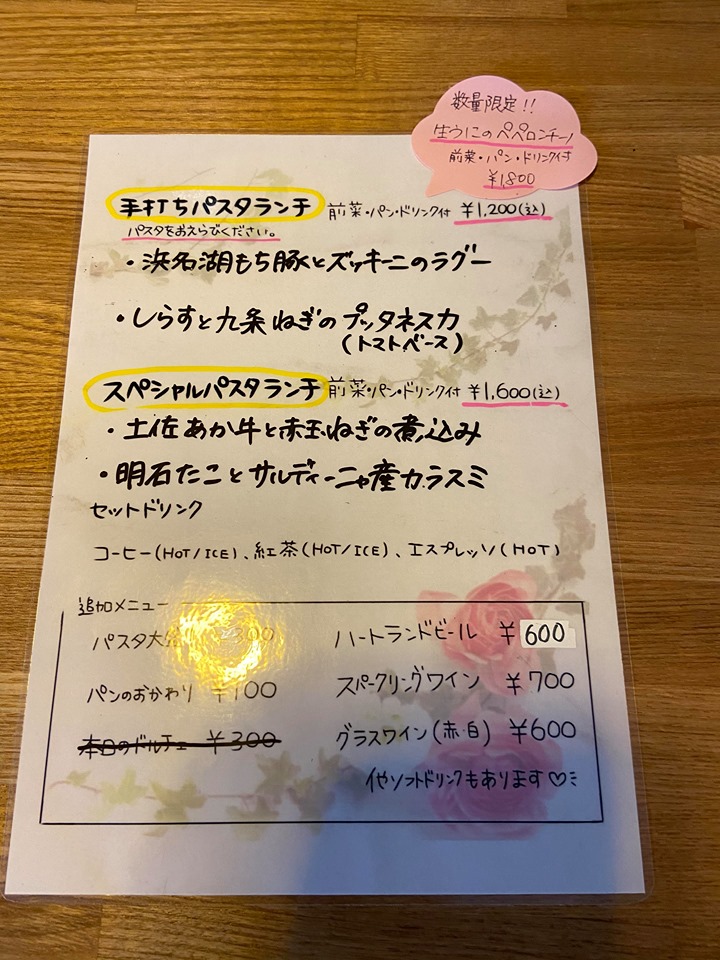 数量限定!!
生うにのペペロンチーノ
前菜・パン・ドリンク付
¥1,800
手打ちパスタランチ 前菜・パン・ドリンク付 ¥1,200(込)
パスタをおえらびください。
・浜名湖もち豚とズッキーニのラグー
・しらすと九条ねぎのプッタネスカ
(トマトベース)
スペシャルパスタランチ 前菜・パン・ドリンク付 ¥1,600(込)
・土佐あか牛と赤玉ねぎの煮込み
・明石たことサルディーニャ産カラスミ
セットドリンク
コーヒー(HOT/ICE)、紅茶(HOT/ICE)、エスプレッソ(HOT)
追加メニュー
パスタ大 ¥300
ハートランドビール ¥600
パンのおかわり ¥100
スパークリングワイン ¥700
本日のドルチェ ¥300
グラスワイン(赤・白) ¥600
他ソフトドリンクもあります♡